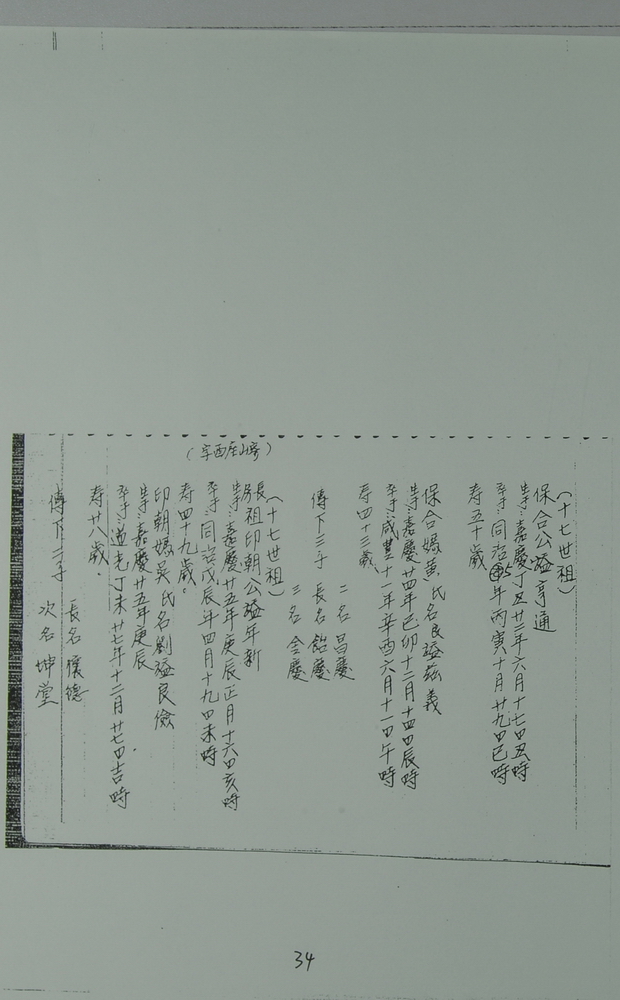 (十七世祖)
保合公諡亨通
生于:嘉慶丁丑廿二年六月十七日丑時
卒于:同治5年丙寅十月廿九日巳時
寿五十歲
保合媽黃氏名良諡茲義
生于:嘉慶廿四年己卯十二月十四日辰時
卒于:咸豐十一年辛酉六月十一日午時
寿四十三歲
二名昌慶
傳下三子 長名飴慶
三名全慶
(十七世祖)
長房祖印朝公諡年新
生于:嘉慶廿五年庚辰正月十六日亥時
卒于:同治戊辰年四月十九日未時
寿四十九歲。
印朝媽吳氏名劉諡良儉
生于:嘉慶廿五年庚辰
卒于:道光丁未廿七年十二月廿七日吉時
寿廿八歲.
傳下二子 長名懷德
次名坤堂
34